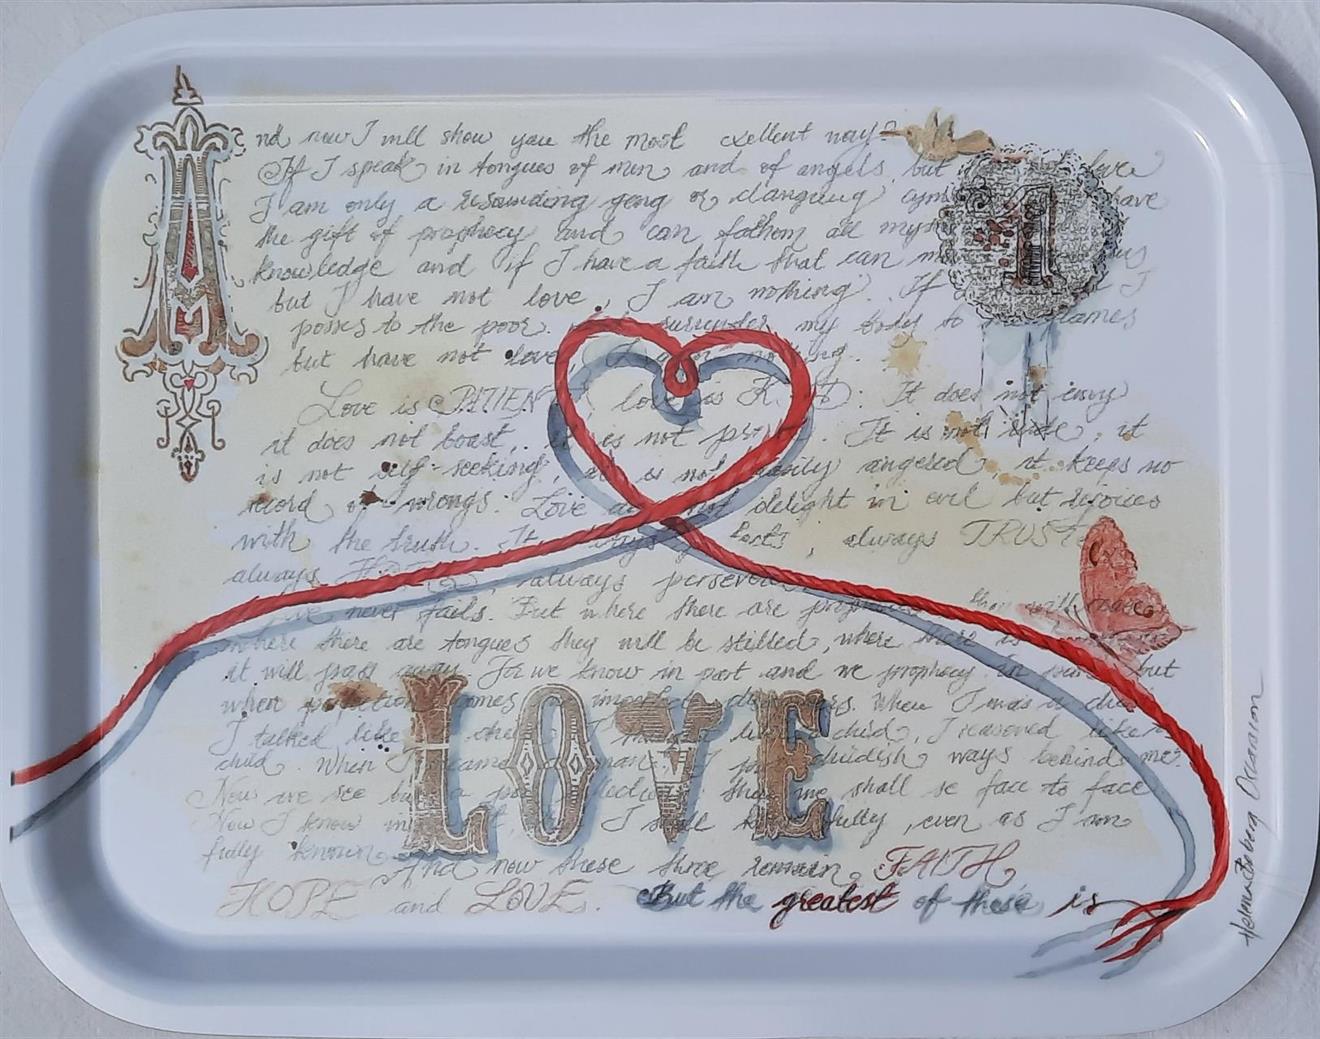 And now I will show you the most exellent way
If I speak in tongues of men and of angels, but not love
I am only a resounding gong or clanging cym have
the gift of prophecy and can fathom all mys
knowledge and if I have a faith that can m
but I have not love, I am nothing. If I
posses to the poor. surrender my body to the flames
but have not love, I nothing.
Love is PATIENT, love is K D. It does not envy
it does not boast, it es not pr . It is not rude, it
is not self-seeking, it is not easily angered, it keeps no
record of wrongs. Love d not delight in evil but rejoices
with the truth. It always tects, always TRUST
always HOPE, always perseve
Love never fails. But where there are prophe they will cease
where there are tongues they will be stilled, where there is
it will pass away. For we know in part and we prophecy in part but
when perfection comes imperfect d ears. When I was a chi
I talked like a child, I thou li child, I reasoned like
child. When I became a man, I p childish ways behind me.
Now we see bu a po lection, then we shall se face to face
Now I know in t, I shall k fully, even as I am
fully known. And now these three remain, FAITH,
HOPE and LOVE. But the greatest of these is
LOVE
1
Helena